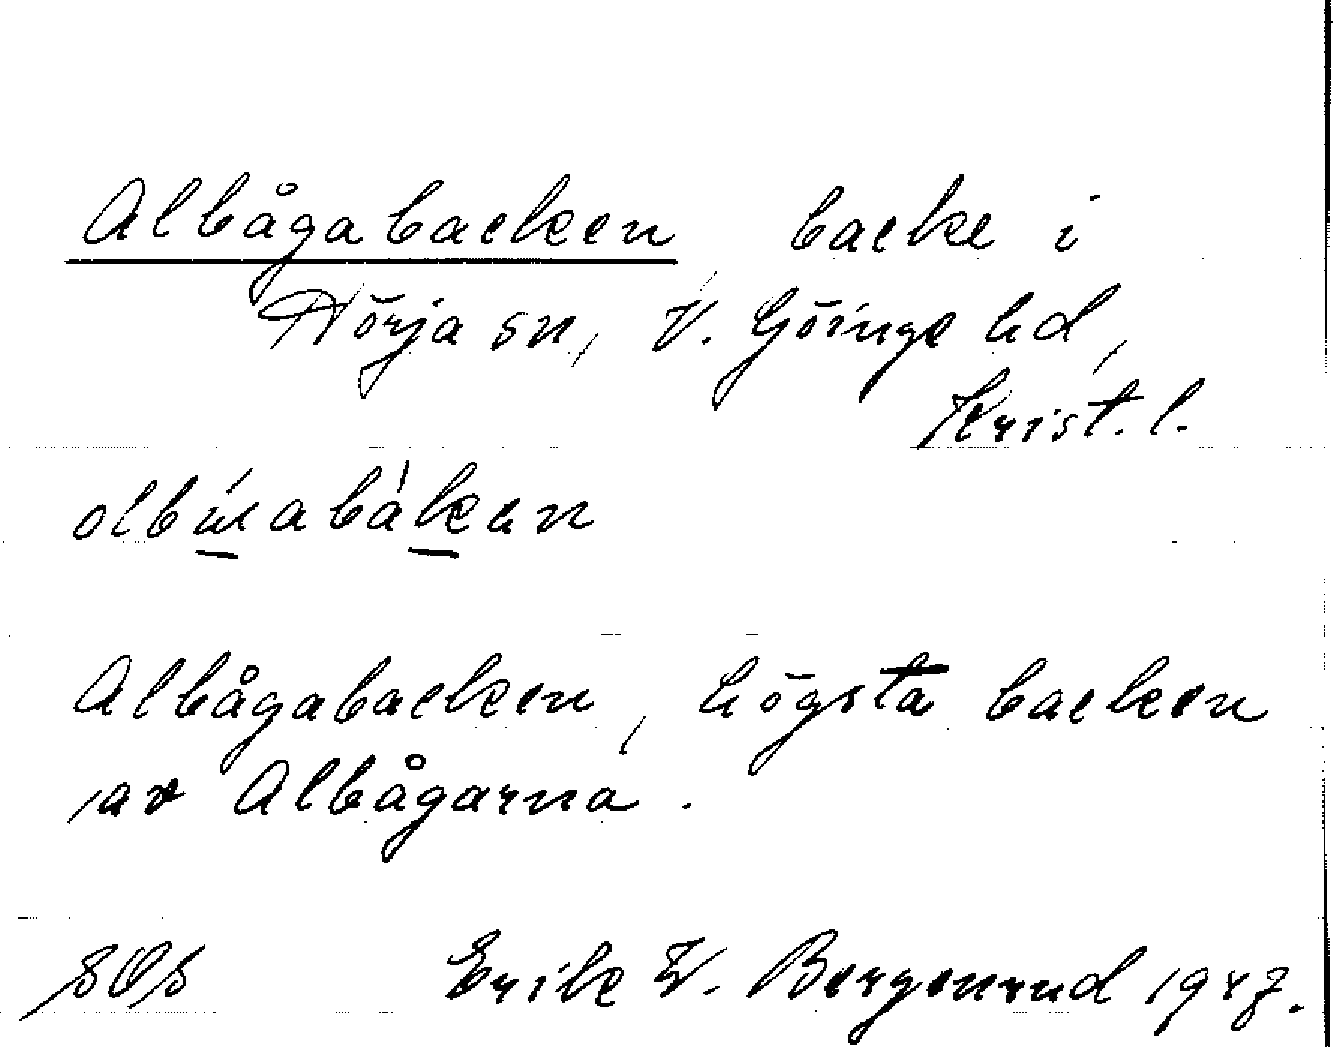 Albågabacken backe i
Nörja sn, V. Göinge hd,
Krist. l.
Albågabacken, högsta backen
av Albågarna.
SOS Erik W. Bergenrud 1947.